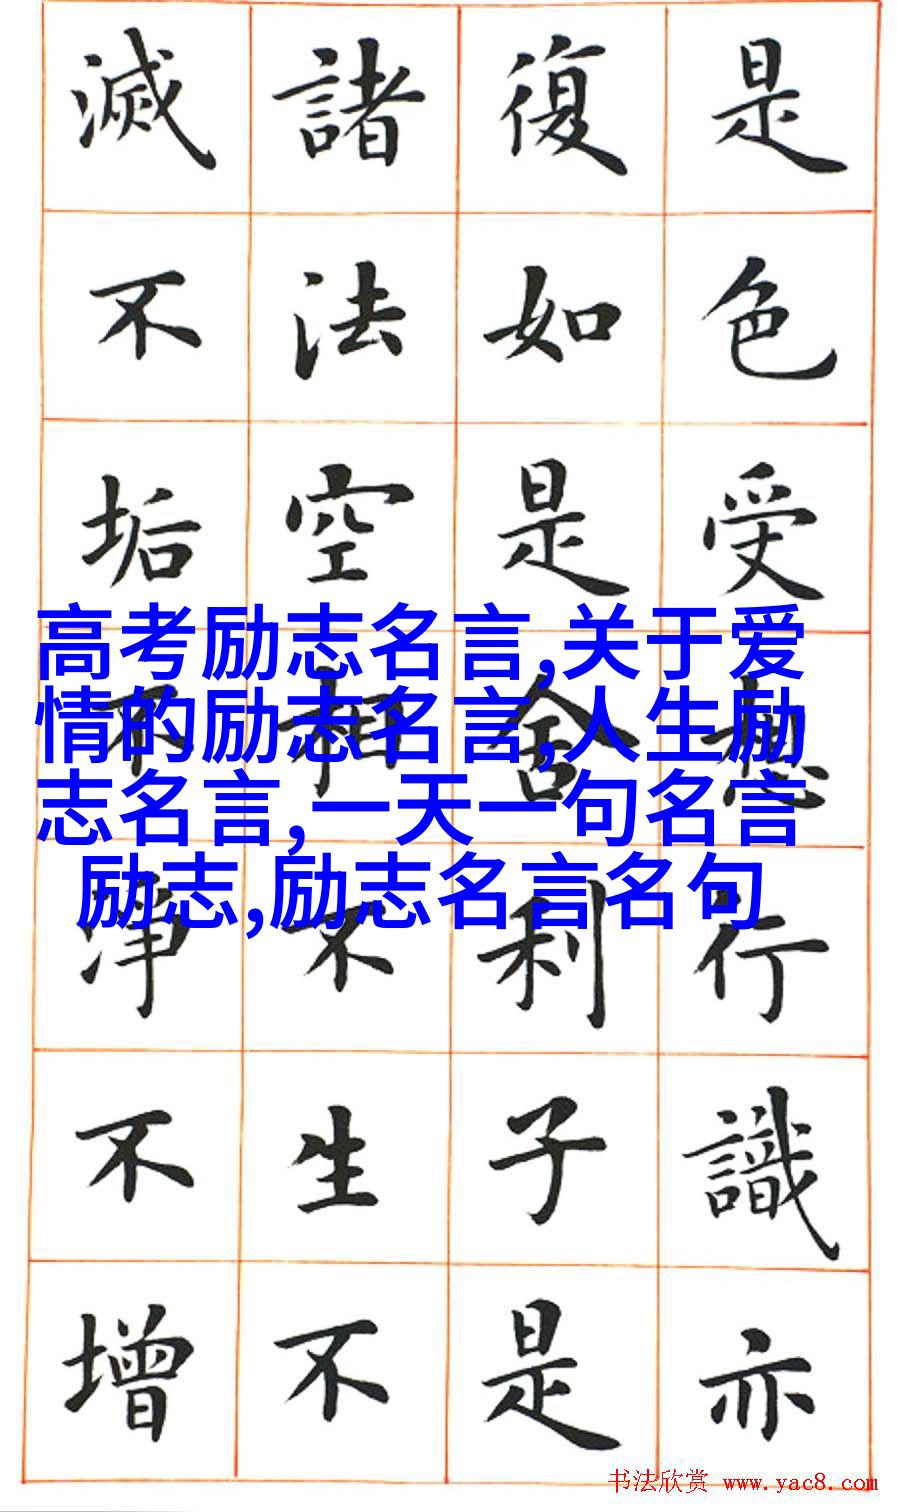 是色受想行識亦
復如是舍利子是
諸法空相不生不
滅不垢不淨不增
高考励志名言,关于爱
情的励志名言,人生励
志名言,一天一句名言
励志,励志名言名句
书法欣赏 www.yac8.com